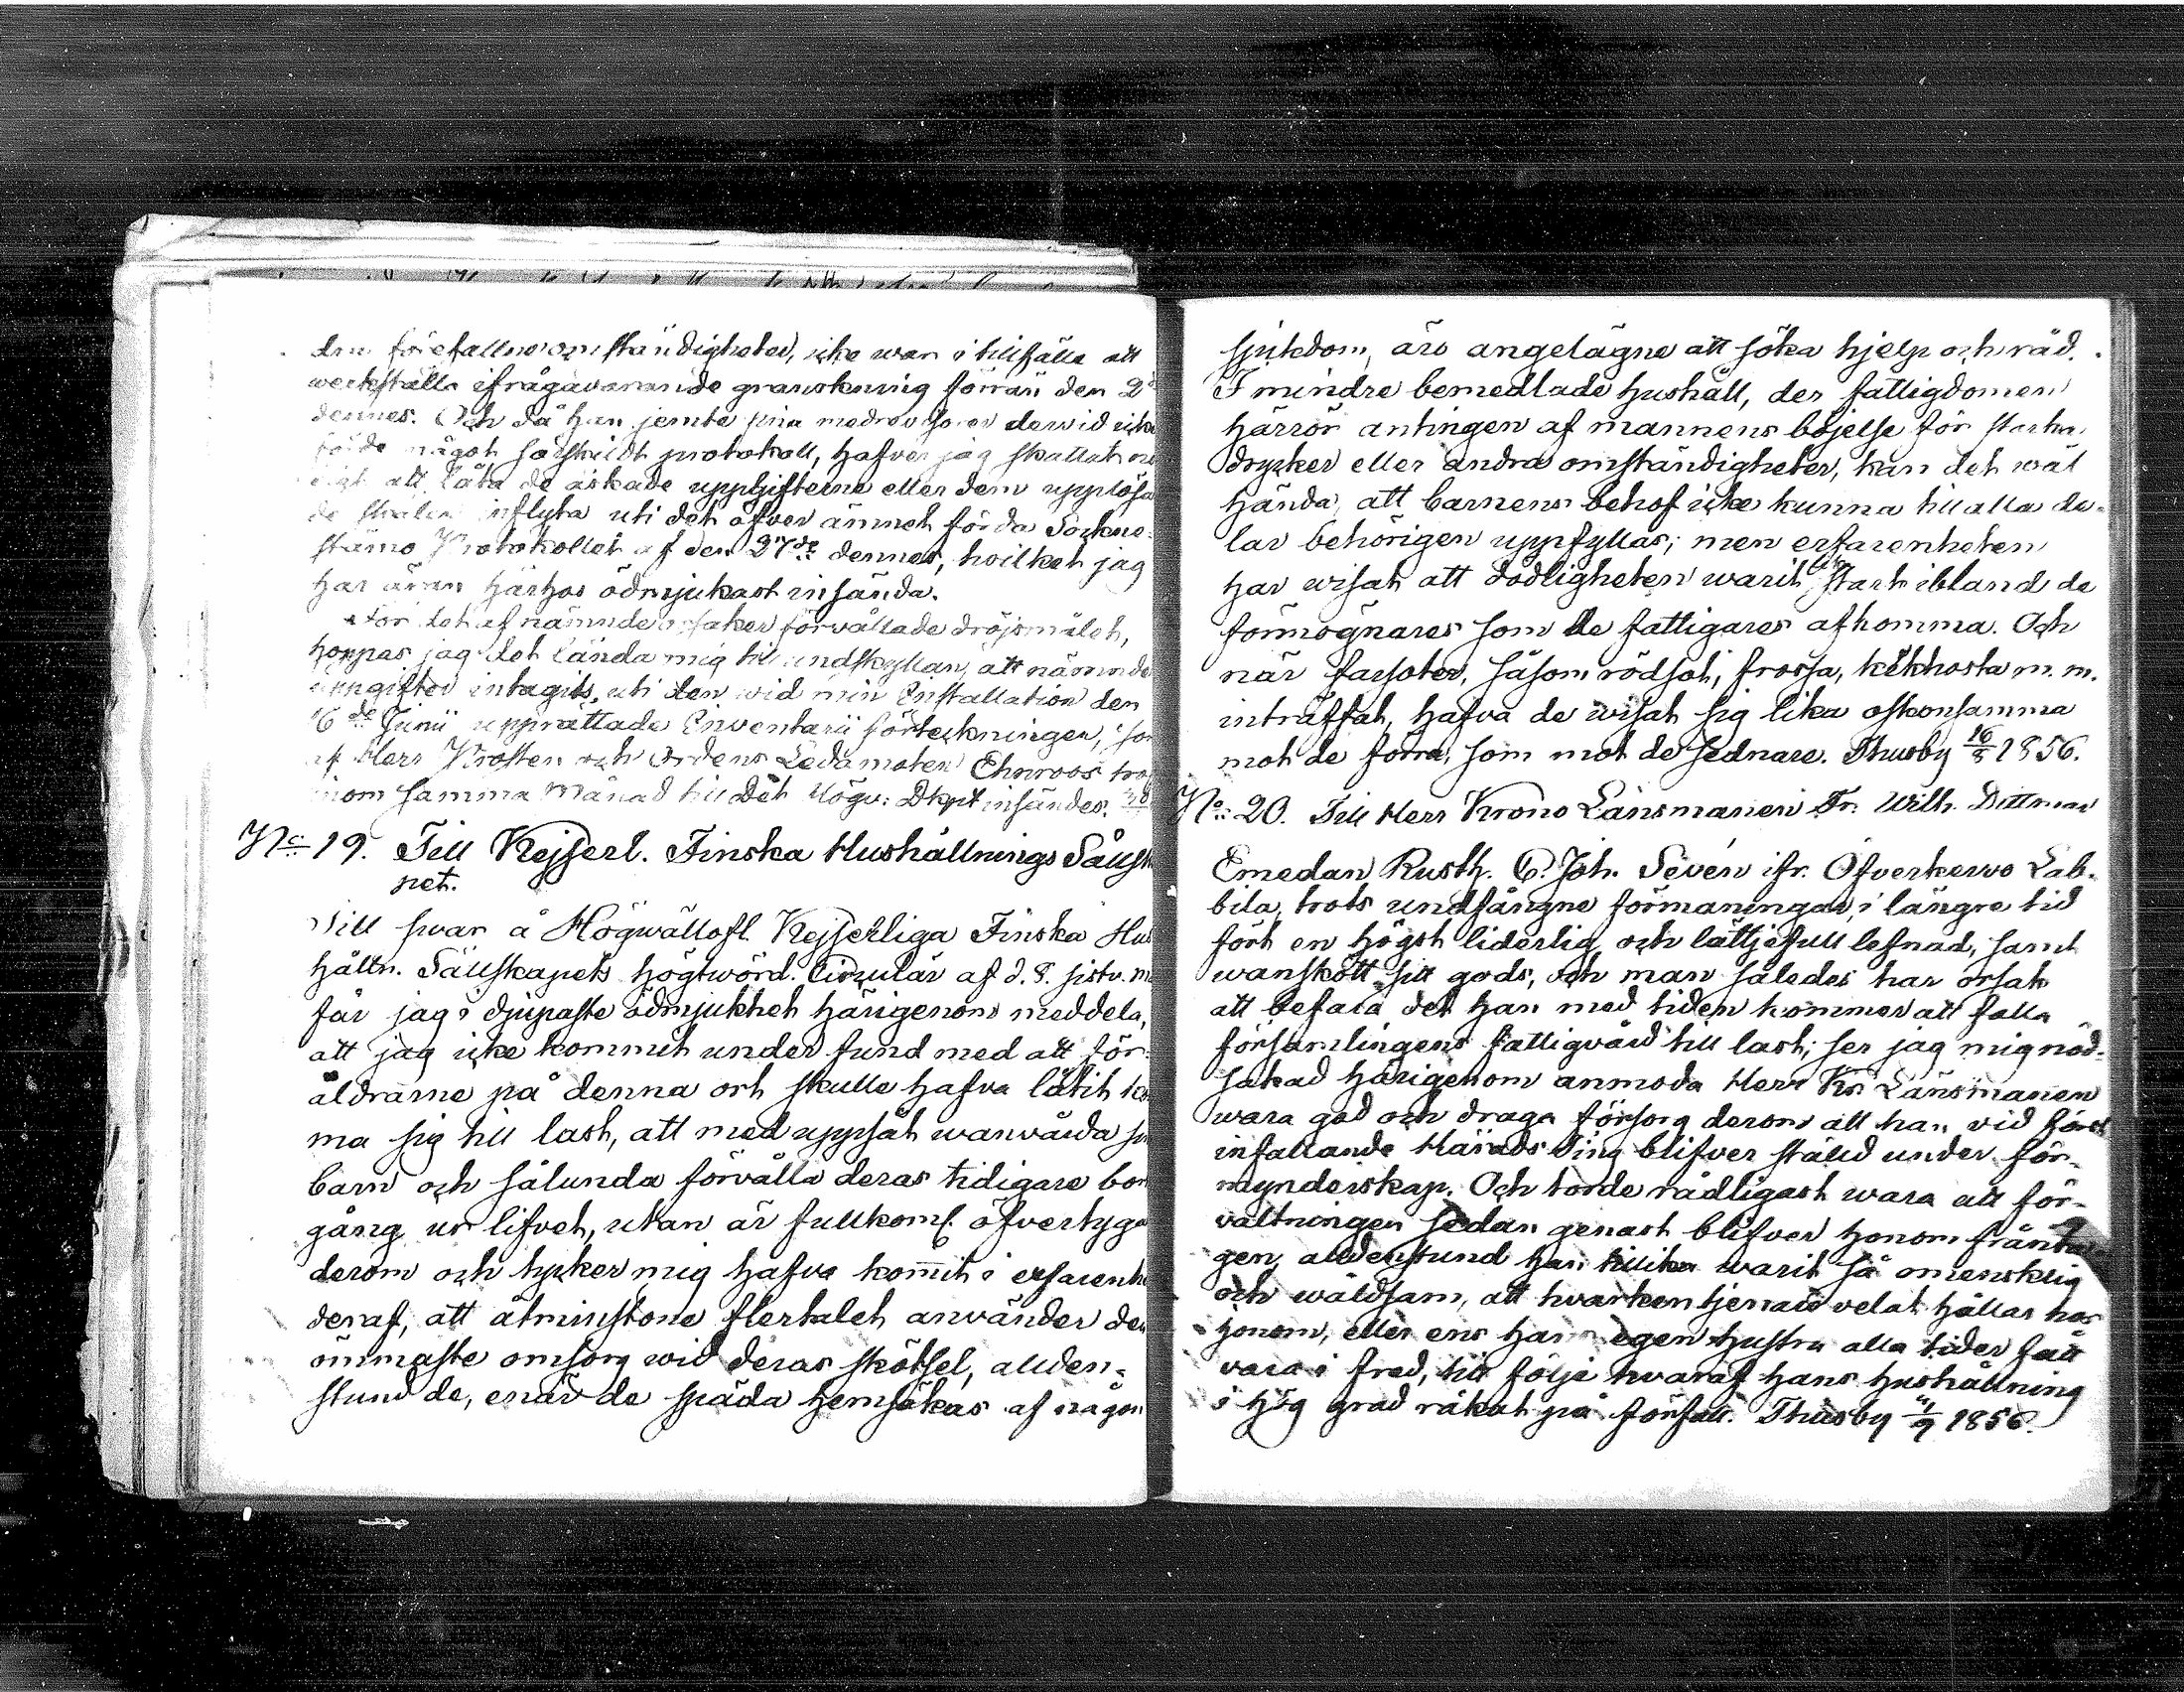 den förefallne omständigheter, icke war i tillfälle att
werkställa ifrågavarande granskning förrän den 2
dennes. Och då han jemte sina medrevisorer derwid icke
förde något särskildt protokoll, hafver jag skattat
att låta de äskade uppgifterne eller dem upplösa
de skalen inflyta uti det öfver ämnet förda Sockne-
stämo Protokollet af den 27de dennes, hvilket jag
har äran härhos ödmjukast insända.
För det af nämnde orsaker förvållade dröjsmålet,
hoppas jag det lända mig till undskyllan, att nämnde
uppgifter intagits uti den wid min Installation den
16de Junii upprättade Inventarii förteckningen, som
af Herr Prosten och Ordens Ledamoten Ehnroos
inom samma Månad till Det Högv: Dkplt insändes.
No 19. Till Kejserl. Finska Hushållnings Sällsk
pet.
Till svar å Högwällofl. Kejserliga Finska Hus
hålln. Sällskapets högtwörd. Cirkulär af d. 8. sistv. m
får jag i djupaste ödmjukhet härigenom meddela,
att jag icke kommit under fund med att för-
äldrarne på denna ort skulle hafva låtit kom
ma sig till last, att med uppsåt wanvårda sin
barn och sålunda förvålla deras tidigare bort
gång ur lifvet, utan är fullkoml. öfvertyga
derom och tycker mig hafva kom̄it i erfarenhe
deraf, att åtminstone flertalet använder den
ömmaste omsorg wid deras skötsel, allden-
stund de, enär de späda hemsökas af någon
sjukdom, äro angelägne att söka hjelp och råd.
I mindre bemedlade hushåll, der fattigdomen
härrör antingen af mannens böjelse för starka
drycker eller andra omständigheter, kan det wäl
hända, att barnens behof icke kunna till alla de-
lar behörigen uppfyllas; men erfarenheten
har wisat att dödligheten warit lika stark ibland de
förmögnares som de fattigares afkomma. Och
när farsoter, såsom rödsot, frossa, kikhosta m. m.
inträffat, hafva de wisat sig lika oskonsamma
mot de förra, som mot de sednare. Thusby 16/8 1856.
No 20. Till Herr Krono Länsmannen Fr. Wilh. Dittmar
Emedan Rusth. C. Joh. Sevén ifr. Öfverkervo Lab-
bila, trots undfångne förmaningar, i längre tid
fört en högst liderlig och lättjefull lefnad, samt
wanskött sitt gods, och man således har orsak
att befara det han med tiden kommer att falla
församlingens fattigvård till last; ser jag mig nöd-
sakad härigenom anmoda Herr Kr. Länsmannen
wara god och draga försorg derom att han vid först
infallande Härads Ting blifver ställd under för-
mynderskap. Och torde rådligast wara att för-
valtningen sedan genast blifver honom fråntа
gen, alldenstund han tillika warit så omensklig
och wåldsam, att hvarken tjenare velat hållas hos
honom, eller ens hans egen hustru alla tider fått
vara i fred, till följe hvaraf hans hushållning
i hög grad råkat på förfall. Thusby 11/9 1856.